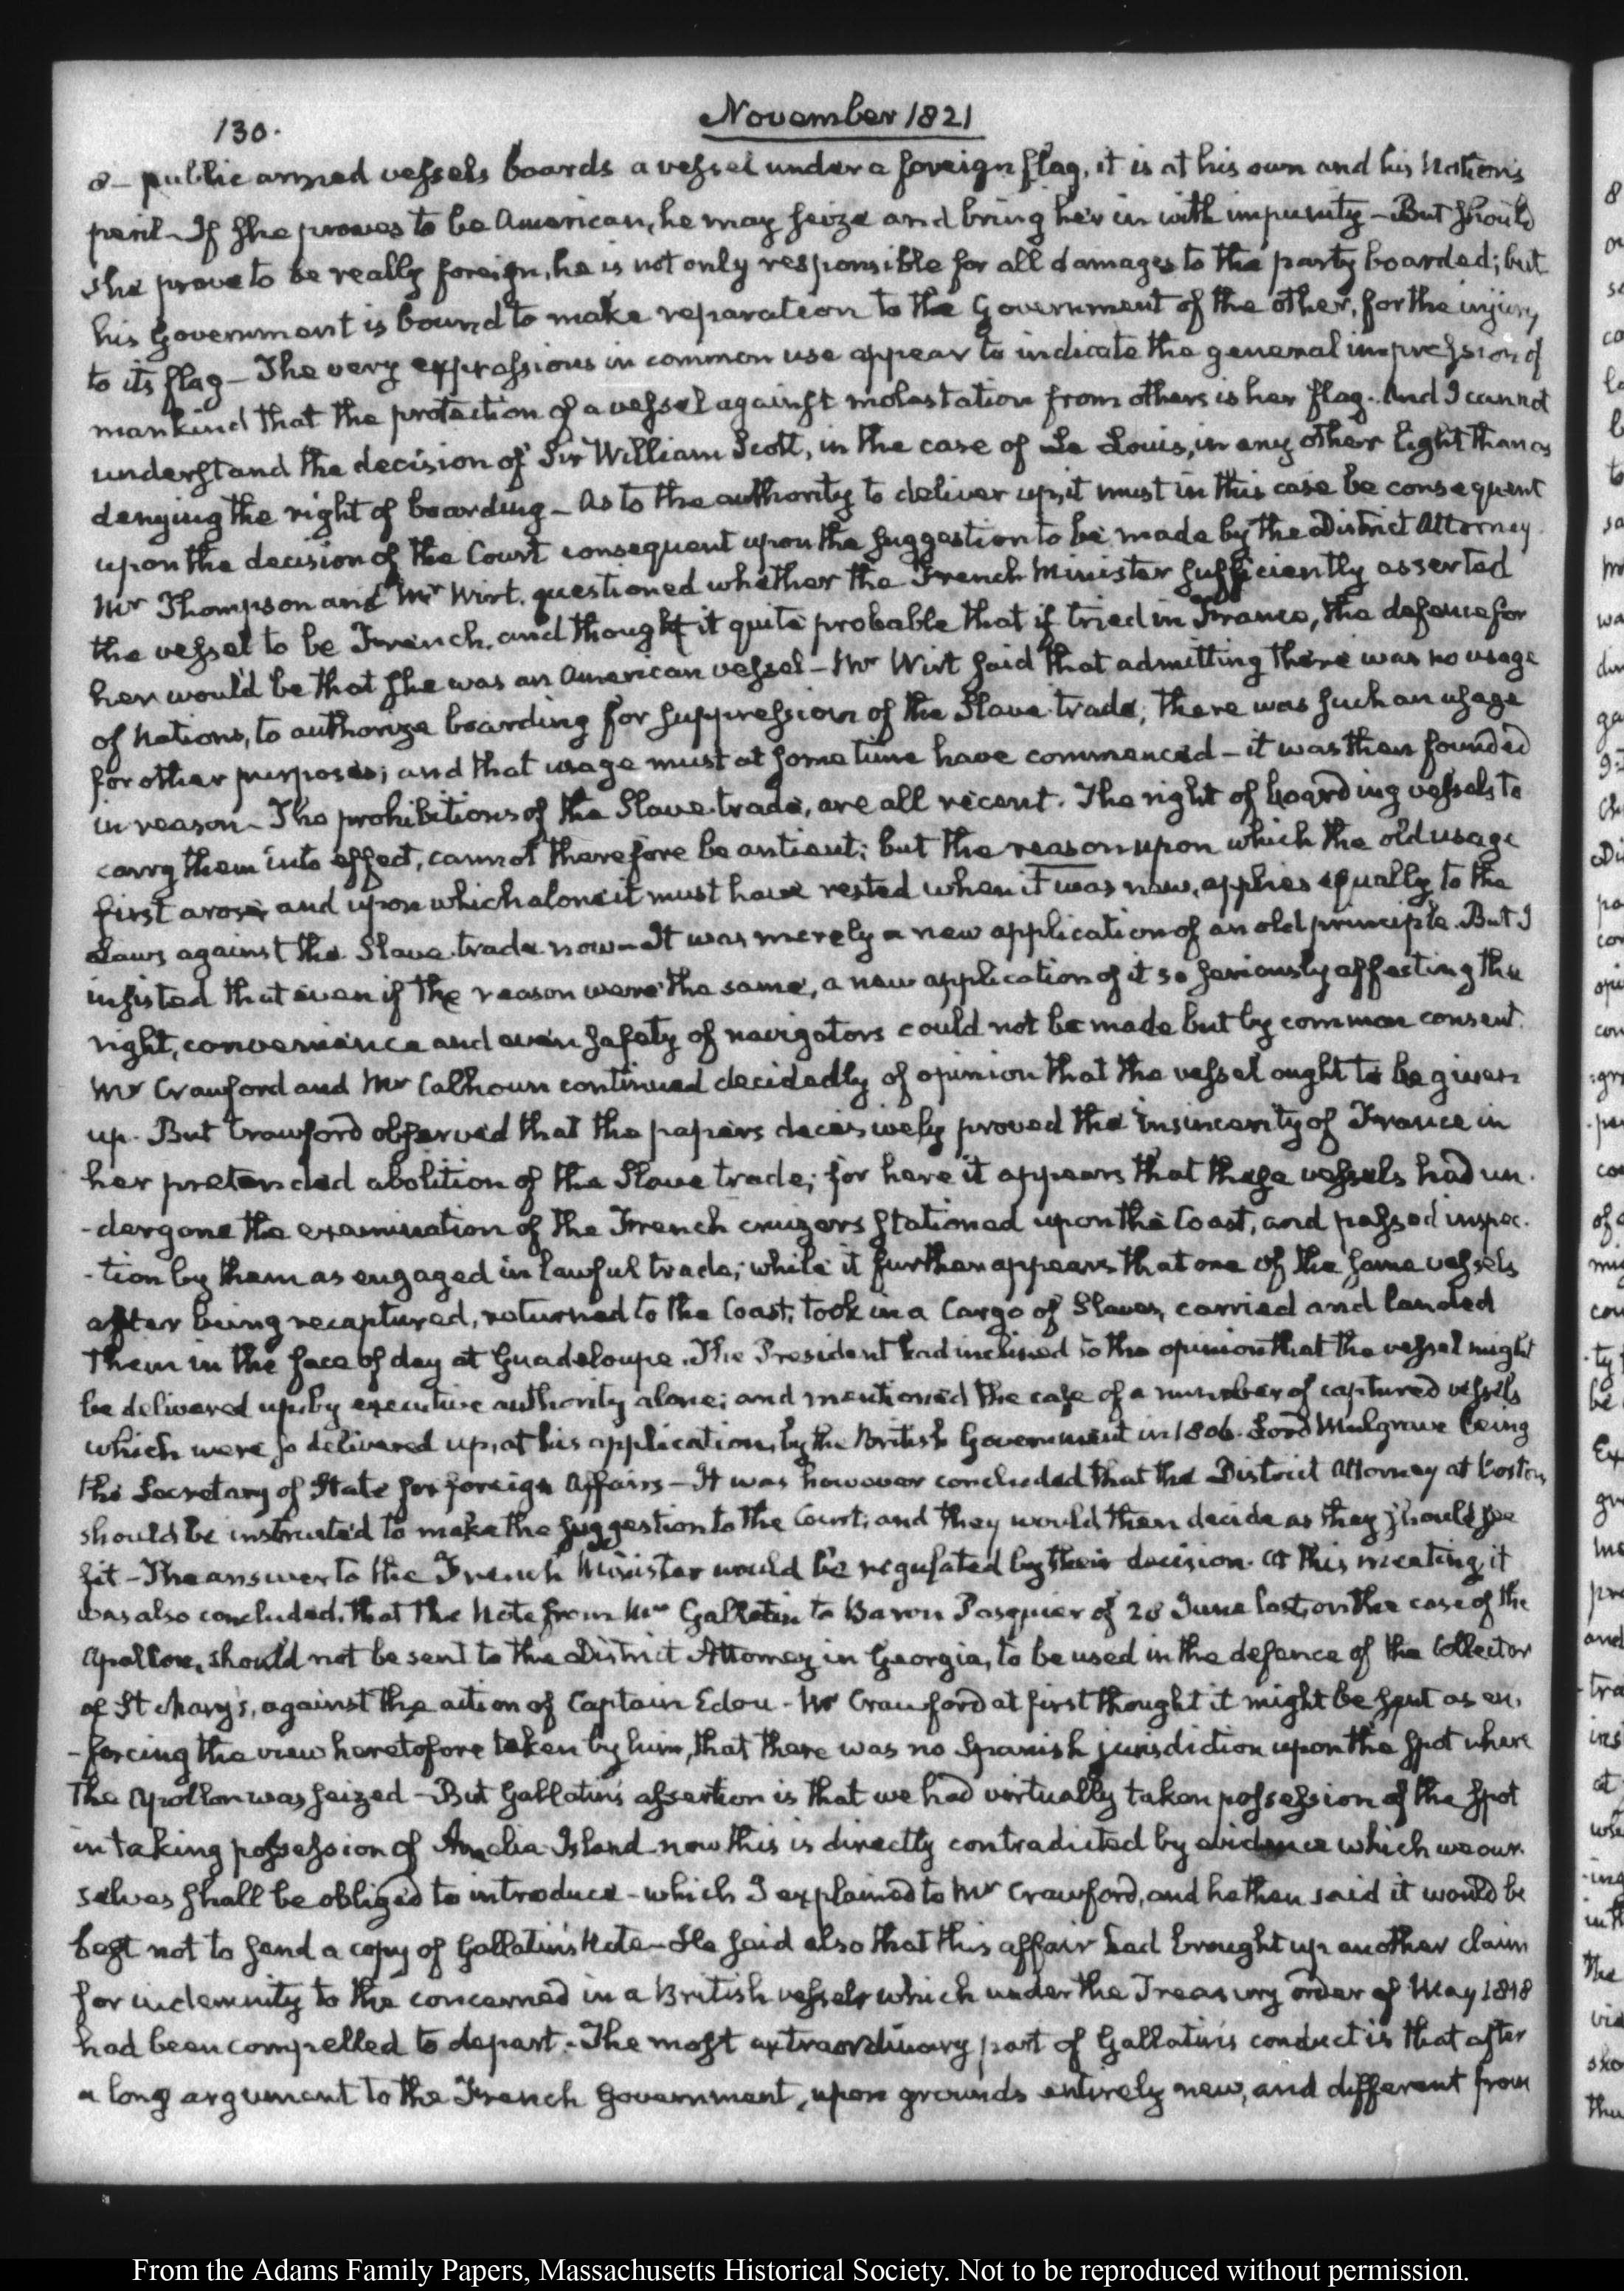 130.
November 1821
8— public armed vessels boards a vessel under a foreign flag, it is at his own and his Nation's
peril— If she proves to be American, he may seize and bring her in with impunity— But should
she prove to be really foreign, he is not only responsible for all damages to the party boarded; but
his Government is bound to make reparation to the Government of the other, for the injury
to its flag— The very expressions in common use appear to indicate the general impression of
mankind that the protection of a vessel against molestation from others is her flag. And I cannot
understand the decision of Sir William Scott, in the case of Le Louis, in any other light than as
denying the right of boarding— As to the authority to deliver up, it must in this case be consequent
upon the decision of the Court consequent upon the suggestion to be made by the District Attorney
Mr Thompson and Mr Wirt, questioned whether the French Minister sufficiently asserted
the vessel to be French, and thought it quite probable that if tried in France, the defence for
her would be that she was an American vessel— Mr Wirt said that admitting there was no usage
of Nations, to authorize boarding for suppression of the Slave trade; there was such an usage
for other purposes; and that usage must at some time have commenced— it was then founded
in reason— The prohibitions of the Slave trade, are all recent. The right of boarding vessels to
carry them into effect, cannot therefore be antient; but the reason upon which the old usage
first arose, and upon which alone it must have rested when it was new, applies equally to the
Laws against the Slave trade now— It was merely a new application of an old principle. But I
insisted that even if the reason were the same, a new application of it so seriously affecting the
right, convenience and even safety of navigators could not be made but by common consent.
Mr Crawford and Mr Calhoun continued decidedly of opinion that the vessel ought to be given
up. But Crawford observed that the papers decisively proved the insincerity of France in
her pretended abolition of the Slave trade; for here it appears that these vessels had un-
-dergone the examination of the French cruizers stationed upon the Coast, and passed inspec-
-tion by them as engaged in lawful trade; while it further appears that one of the same vessels
after being recaptured, returned to the Coast, took in a Cargo of Slaves, carried and landed
them in the face of day at Guadeloupe. The President had inclined to the opinion that the vessel might
be delivered up by executive authority alone; and mentioned the case of a number of captured vessels
which were so delivered up, at his application, by the British Government in 1806. Lord Mulgrave being
the Secretary of State for foreign Affairs— It was however concluded that the District Attorney at Boston,
should be instructed to make the suggestion to the Court; and they would then decide as they should see
fit— The answer to the French Minister would be regulated by their decision. At this meeting, it
was also concluded, that the Note from Mr Gallatin to Baron Pasquier of 28 June last, on the case of the
Apollon, should not be sent to the District Attorney in Georgia, to be used in the defence of the Collector
of St Mary's, against the action of Captain Edou— Mr Crawford at first thought it might be sent as en-
-forcing the view heretofore taken by him, that there was no Spanish jurisdiction upon the spot where
the Apollon was seized— But Gallatin's assertion is that we had virtually taken possession of the spot
in taking possession of Amelia Island— now this is directly contradicted by evidence which we our-
selves shall be obliged to introduce— which I explained to Mr Crawford, and he then said it would be
best not to send a copy of Gallatin's Note— He said also that this affair had brought up another claim
for indemnity to the concerned in a British vessels which under the Treasury order of May 1818
had been compelled to depart.— The most extraordinary part of Gallatin's conduct is that after
a long argument to the French Government, upon grounds entirely new, and different from
From the Adams Family Papers, Massachusetts Historical Society. Not to be reproduced without permission.